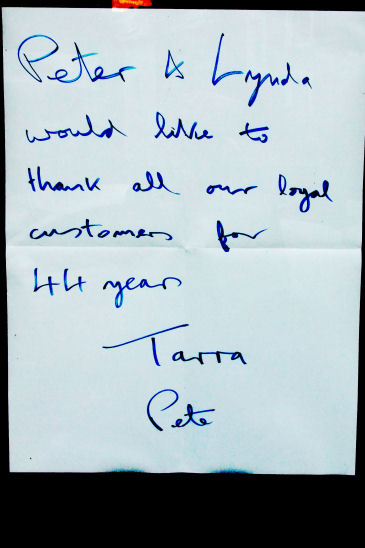 Peter & Lynda
would like to
thank all our loyal
customers for
44 years
Tarra
Pete